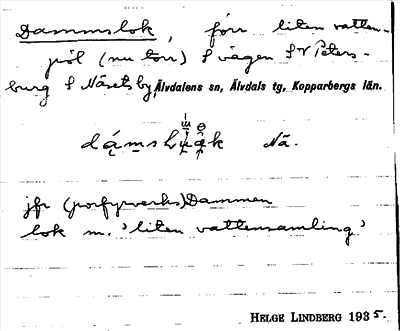 Dammslok, förr liten vatten-
pöl (nu torr) S vägen S V Peters-
burg S Näsets by, Älvdalens sn, Älvdals tg, Kopparbergs län.
Nä.
jfr (porfyrverks)Dammen
lok m. 'liten vattensamling'
HELGE LINDBERG 1935.